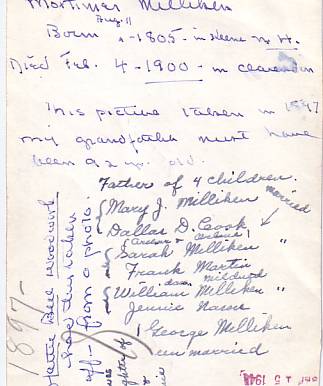 Mortimer Milliken
Aug. 11
Born - 1805 - in Keene N.H.
Died Feb. 4 - 1900 - in Clarendon
This picture taken in 1897
my grandfather must have
been 92 yr. old.
Father of 4 children.
Mary J. Milliken
married
Dallas D. Cook
Sarah Milliken "
Frank Martin
Mildred
William Milliken "
Jennie
George Milliken
un married
Hattie Bell Woodworth
had this taken
off - from a photo.
1897-